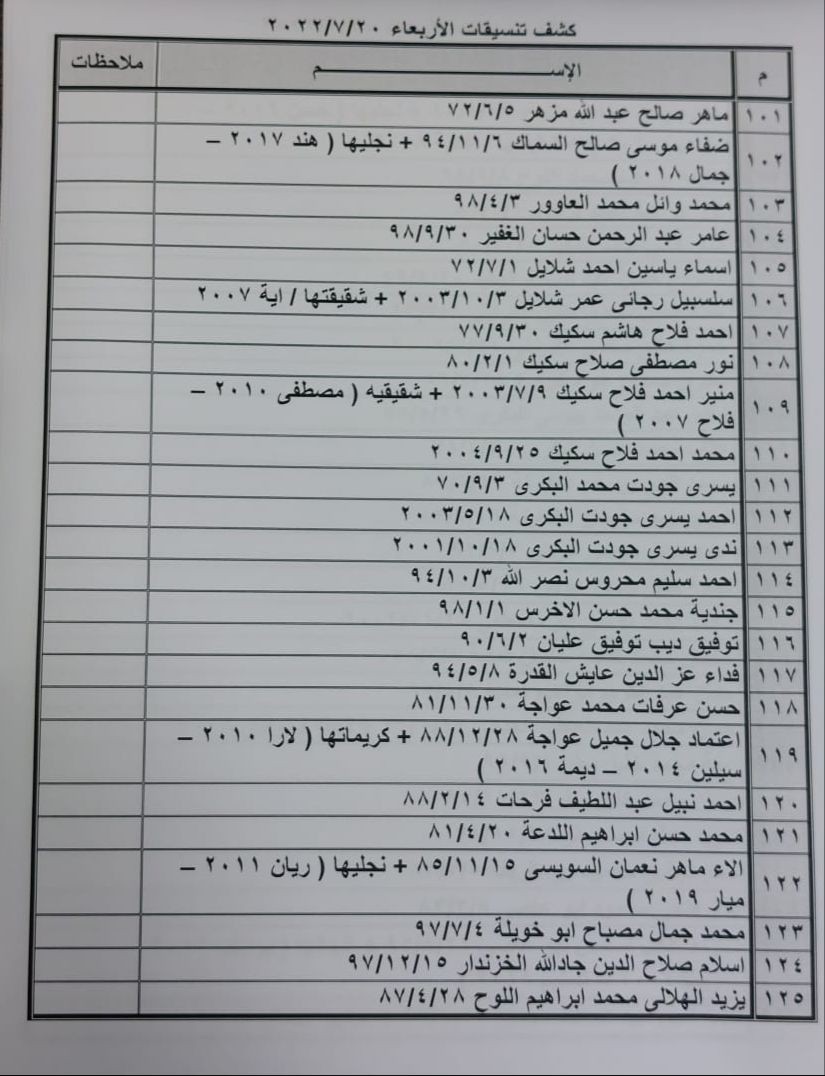 كشف تنسيقات الأربعاء ٢٠٢٢/٧/٢٠
م الإســـــم ملاحظات
١٠١ ماهر صالح عبد الله مزهر ٧٢/٦/٥
١٠٢ ضفاء موسى صالح السماك ٩٤/١١/٦ + نجليها ( هند ٢٠١٧ –
جمال ٢٠١٨ )
١٠٣ محمد وائل محمد العاوور ٩٨/٤/٣
١٠٤ عامر عبد الرحمن حسان الغفير ٩٨/٩/٣٠
١٠٥ اسماء ياسين احمد شلايل ٧٢/٧/١
١٠٦ سلسبيل رجائى عمر شلايل ٢٠٠٣/١٠/٣ + شقيقتها / اية ٢٠٠٧
١٠٧ احمد فلاح هاشم سكيك ٧٧/٩/٣٠
١٠٨ نور مصطفى صلاح سكيك ٨٠/٢/١
١٠٩ منير احمد فلاح سكيك ٢٠٠٣/٧/٩ + شقيقيه ( مصطفى ٢٠١٠ –
فلاح ٢٠٠٧ )
١١٠ محمد احمد فلاح سكيك ٢٠٠٤/٩/٢٥
١١١ يسرى جودت محمد البكرى ٧٠/٩/٣
١١٢ احمد يسرى جودت البكرى ٢٠٠٣/٥/١٨
١١٣ ندى يسرى جودت البكرى ٢٠٠١/١٠/١٨
١١٤ احمد سليم محروس نصر الله ٩٤/١٠/٣
١١٥ جندية محمد حسن الاخرس ٩٨/١/١
١١٦ توفيق ديب توفيق عليان ٩٠/٦/٢
١١٧ فداء عز الدين عايش القدرة ٩٤/٥/٨
١١٨ حسن عرفات محمد عواجة ٨١/١١/٣٠
١١٩ اعتماد جلال جميل عواجة ٨٨/١٢/٢٨ + كريماتها ( لارا ٢٠١٠ –
سيلين ٢٠١٤ – ديمة ٢٠١٦ )
١٢٠ احمد نبيل عبد اللطيف فرحات ٨٨/٢/١٤
١٢١ محمد حسن ابراهيم اللدعة ٨١/٤/٢٠
١٢٢ الاء ماهر نعمان السويسى ٨٥/١١/١٥ + نجليها ( ريان ٢٠١١ –
ميار ٢٠١٩ )
١٢٣ محمد جمال مصباح ابو خويلة ٩٧/٧/٤
١٢٤ اسلام صلاح الدين جادالله الخزندار ٩٧/١٢/١٥
١٢٥ يزيد الهلالى محمد ابراهيم اللوح ٨٧/٤/٢٨